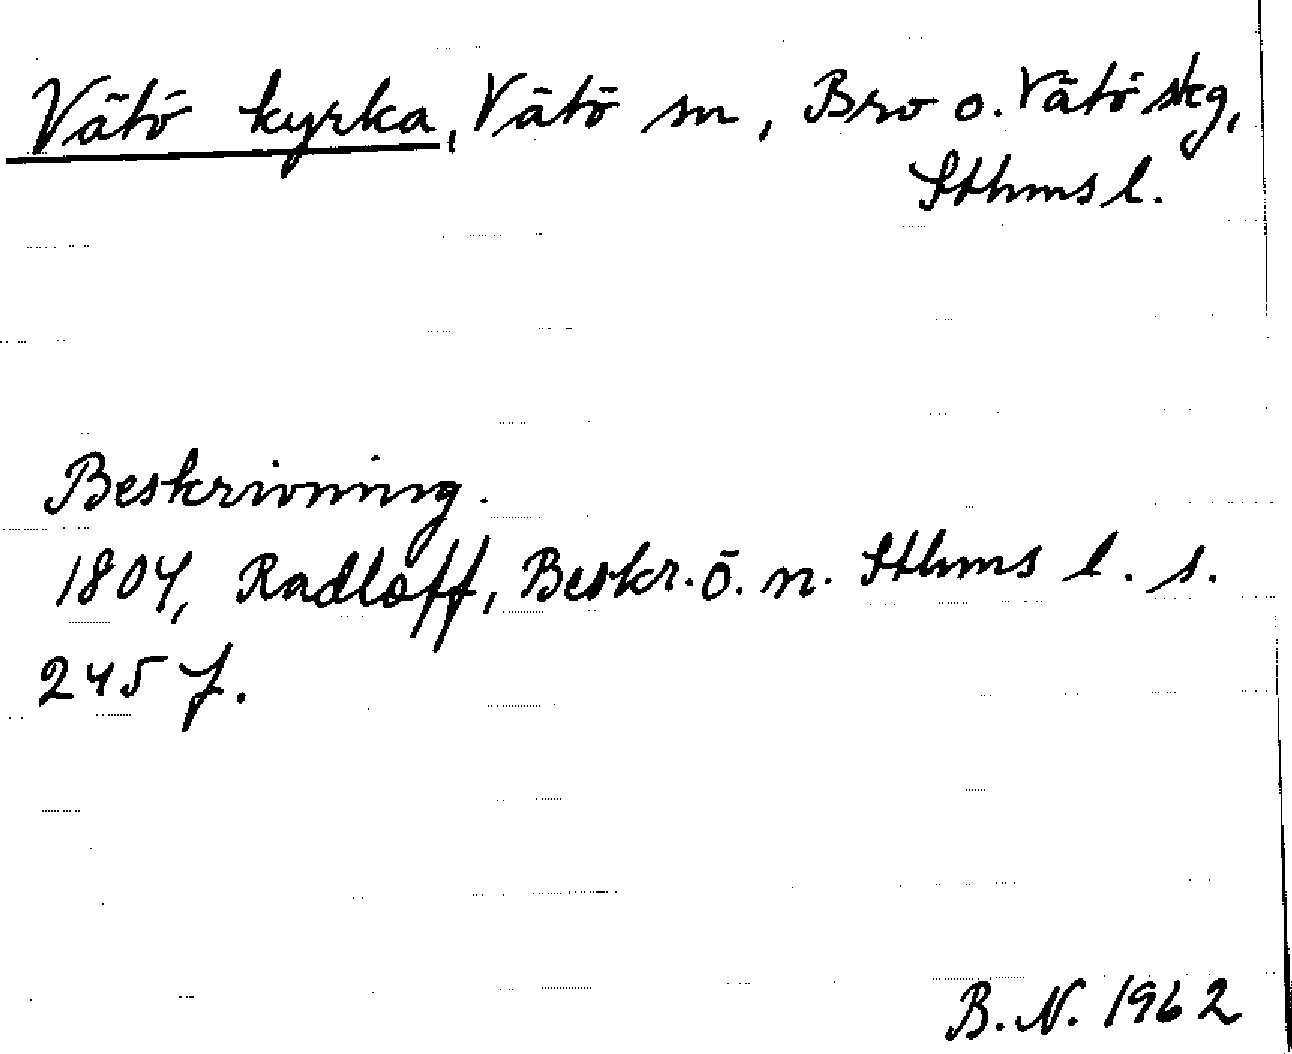 Vätö kyrka, Vätö sn, Bro o. Vätö skg,
Sthms l.
Beskrivning.
1804, Radloff, Beskr. ö. n. Sthms l. s.
245 f.
B.N. 1962